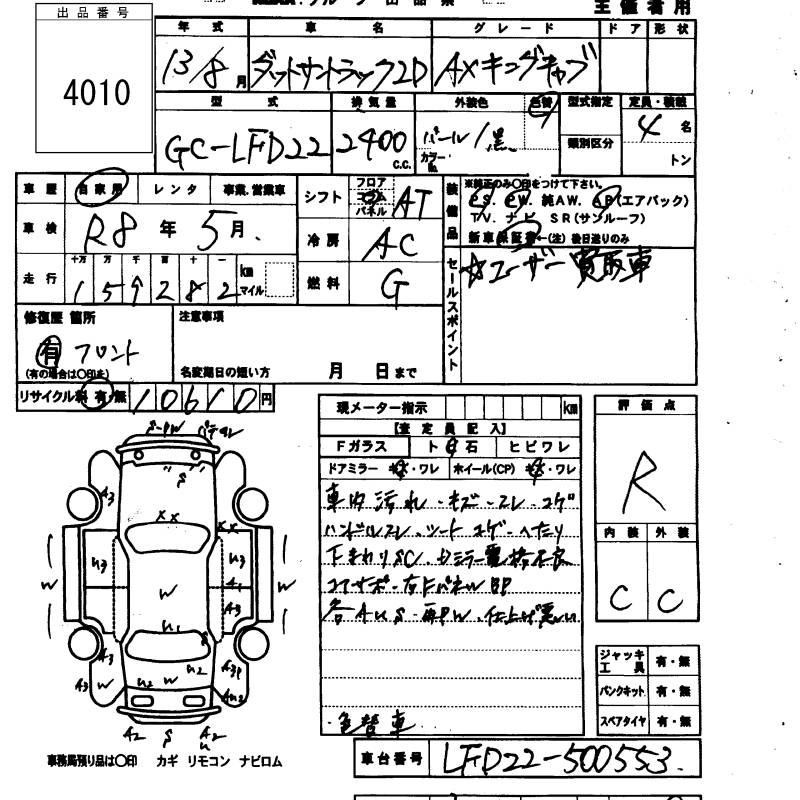 出品番号
4010
主催者用
年式 車名 グレード ドア 形状
13/8月 ダットサントラック2D AXキングキャブ
型式 排気量 外装色 色替 型式指定 定員・積載
GC-LFD22 2400c.c. パール/黒 カラーNo. 類別区分 4名 トン
車歴 自家用 レンタ 事業.営業車
車検 R8年5月.
走行 十万 万 千 百 十 一 km マイル
1 5 9 2 8 2
シフト フロア コラム パネル AT
冷房 AC
燃料 G
装備品 ※純正のみ○印をつけて下さい。
PS. PW. 純AW. AB(エアバック)
TV. ナビ SR(サンルーフ)
新車保証書←(注) 後日送りのみ
セールスポイント ☆ユーザー買取車
修復歴 箇所
有 フロント
(有の場合は○印を)
注意事項
名変期日の短い方 月 日まで
リサイクル料 有・無 10610円
現メーター指示 km
【査定員記入】
Fガラス ト 石 ヒビワレ
ドアミラー キズ・ワレ ホイール(CP) キズ・ワレ
車内汚れ・キズ・スレ・コゲ
ハンドルスレ、シートコゲ・ヘたり
下まわりSC、
コアサポ・右FパネルBP
各AUS・再PW、仕上げ悪い
・色替車
評価点
R
内装 外装
C C
ジャッキ工具 有・無
パンクキット 有・無
スペアタイヤ 有・無
事務局預り品は○印 カギ リモコン ナビロム
車台番号 LFD22-500553.